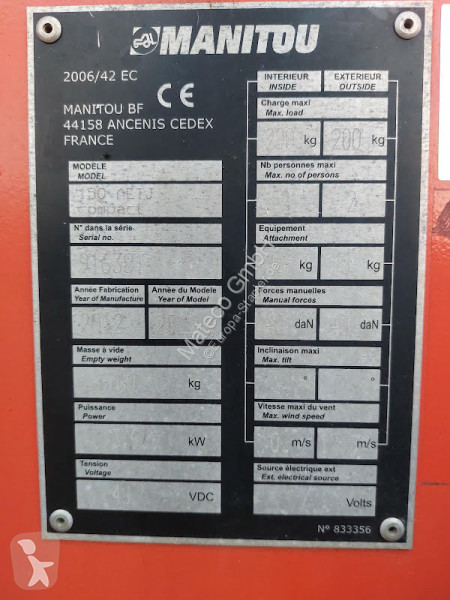 MANITOU
2006/42 EC
CE
MANITOU BF
44158 ANCENIS CEDEX
FRANCE
MODELE
MODEL
150 AETJ
compact
N° dans la série.
Serial no.
Année Fabrication
Year of Manufacture
Année du Modele
Year of Model
Masse à vide
Empty weight
kg
Puissance
Power
kW
Tension
Voltage
VDC
INTERIEUR
INSIDE
EXTERIEUR
OUTSIDE
Charge maxi
Max. load
kg
200 kg
Nb personnes maxi
Max. no of persons
Equipement
Attachment
kg
kg
Forces manuelles
Manual forces
daN
daN
Inclinaison maxi
Max. tilt
°
°
Vitesse maxi du vent
Max. wind speed
m/s
m/s
Source électrique ext
Ext. electrical source
Volts
N° 833356
Mateco GmbH